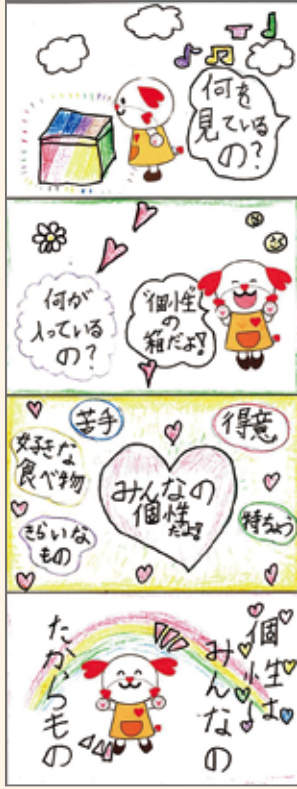 何を
見ている
の？
何が
入っている
の？
"個性"
の
箱だよ！
苦手
得意
好きな
食べ物
みんなの
個性
だよ！
きらいな
もの
特ちょう
個性は
みんなの
たからもの